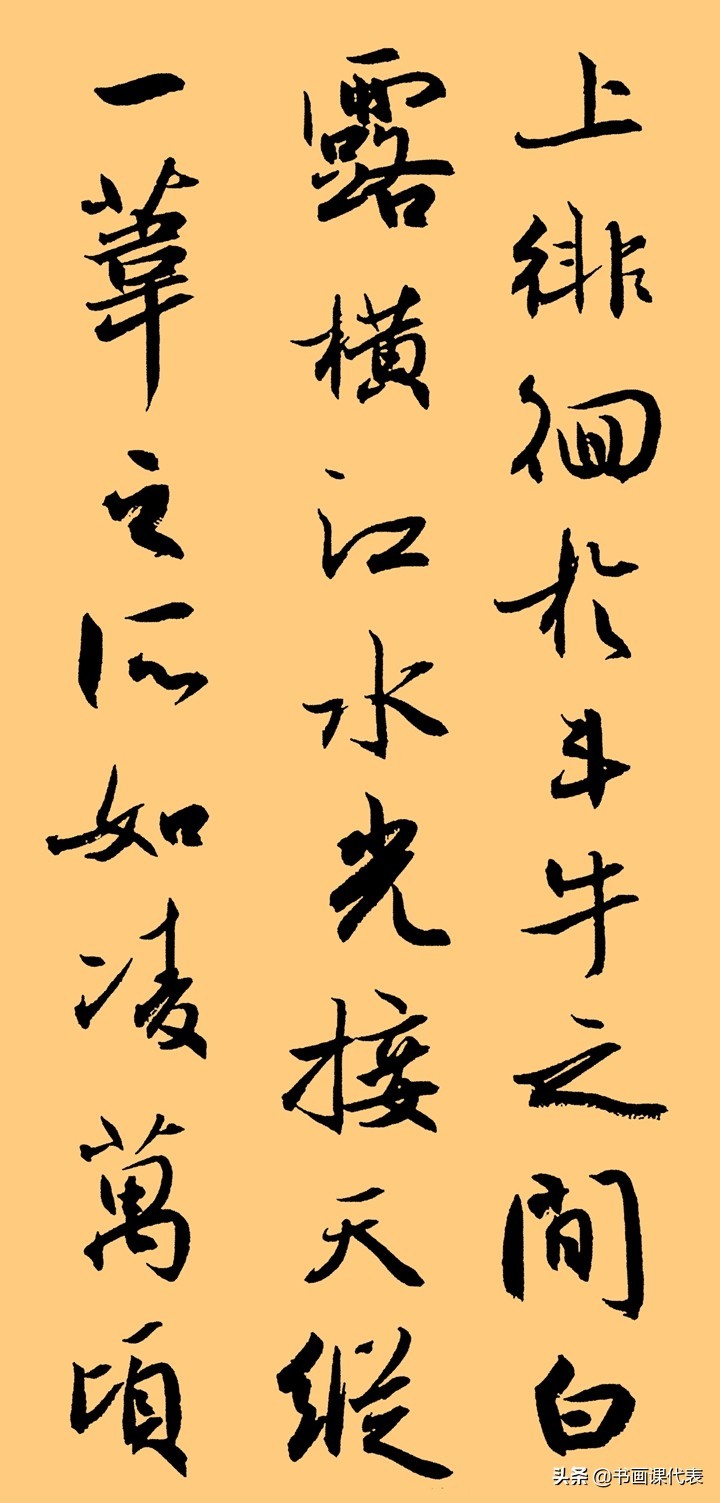 上徘徊於斗牛之間白
露橫江水光接天縱
一葦之所如凌萬頃
头条 @书画课代表